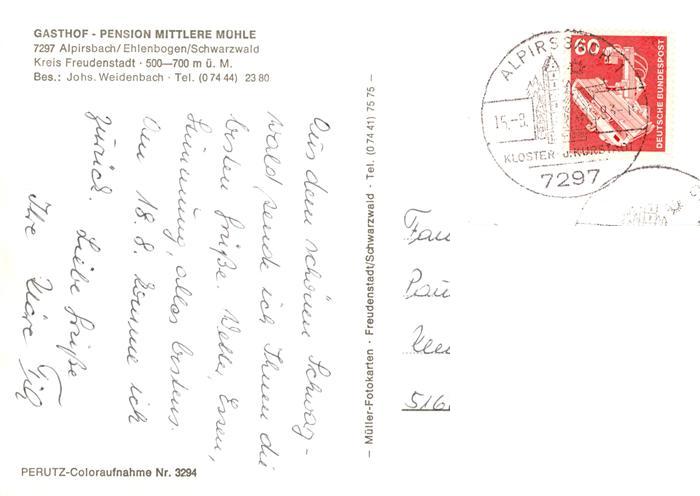 GASTHOF - PENSION MITTLERE MÜHLE
7297 Alpirsbach/Ehlenbogen/Schwarzwald
Kreis Freudenstadt · 500—700 m ü. M.
Bes.: Johs. Weidenbach · Tel. (0 74 44) 23 80
Aus dem schönen Schwarz-
wald sende ich Ihnen die
besten Grüße. Wetter, Essen,
Stimmung, alles bestens.
Am 18.8. komme ich
zurück. Liebe Grüße
Ihre
PERUTZ-Coloraufnahme Nr. 3294
— Müller-Fotokarten · Freudenstadt/Schwarzwald · Tel. (0 74 41) 75 75 —
60
DEUTSCHE BUNDESPOST
15.-8.
KLOSTER- u. KURSTADT
7297
516